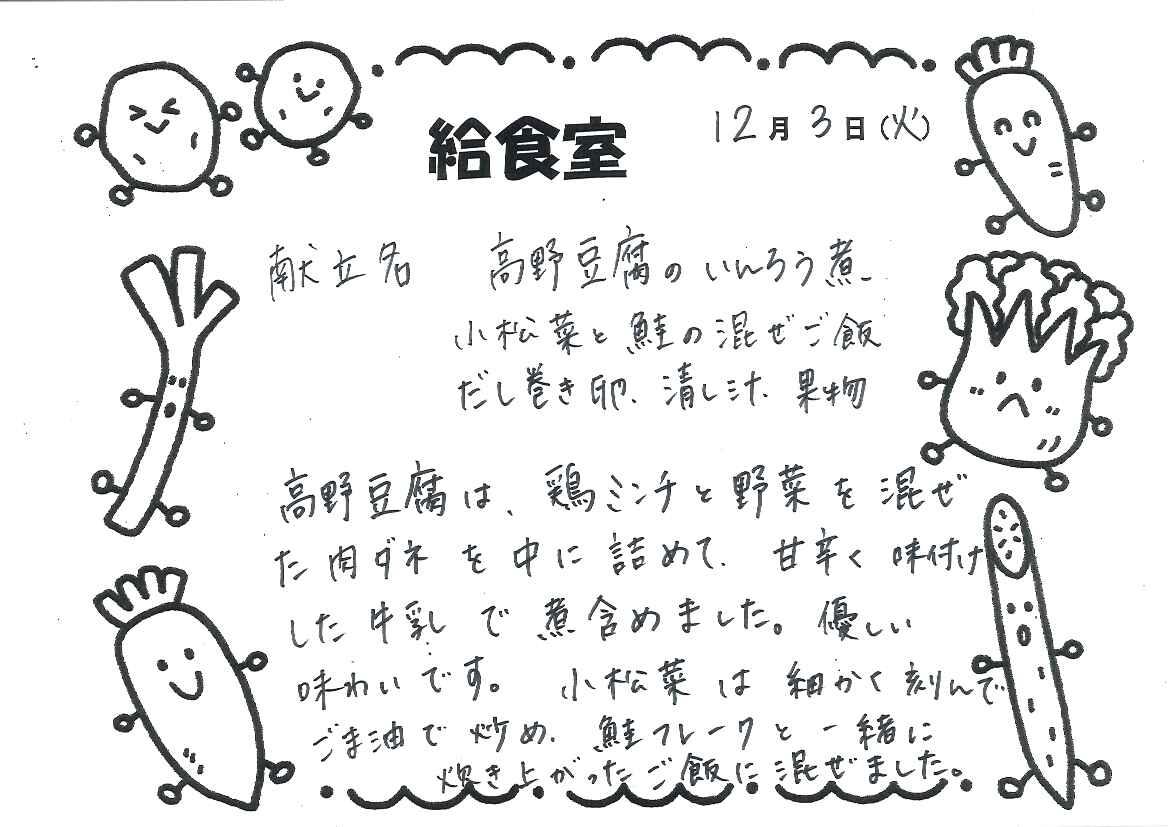 給食室
12月3日(火)
献立名 高野豆腐のいんろう煮
小松菜と鮭の混ぜご飯
だし巻き卵、清し汁、果物
高野豆腐は、鶏ミンチと野菜を混ぜ
た肉ダネを中に詰めて、甘辛く味付け
した牛乳で煮含めました。優しい
味わいです。 小松菜は細かく刻んで
ごま油で炒め、鮭フレークと一緒に
炊き上がったご飯に混ぜました。